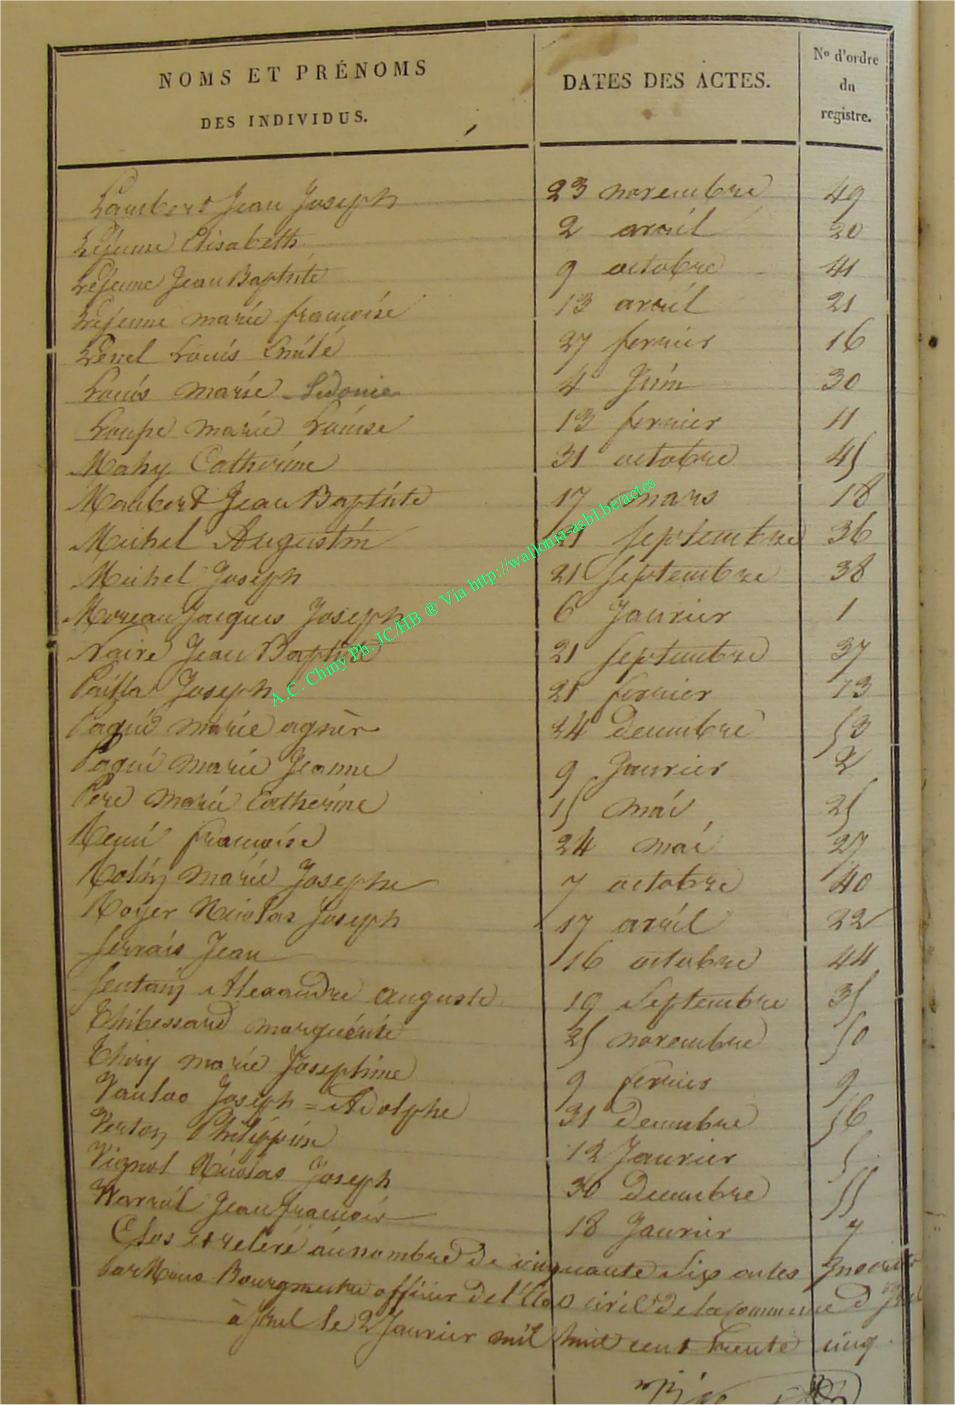 NOMS ET PRÉNOMS
DES INDIVIDUS.
DATES DES ACTES.
No d'ordre
du
registre.
Lambert Jean Joseph 23 novembre 49
Lejeune Elisabeth 2 avril 20
Lejeune Jean Baptiste 9 octobre 41
Lejeune marie francoise 13 avril 21
Louis Emile 27 fevrier 16
Louis marie Sidonie 4 Juin 30
Loupe marie Louise 13 fevrier 11
Mahy Catherine 31 octobre 45
Maubert Jean Baptiste 17 mars 18
Michel Augustin 21 Septembre 36
Michel Joseph 21 Septembre 38
Moreau Jacques Joseph 6 Janvier 1
Naire Jean Baptiste 21 Septembre 37
Joseph 21 fevrier 13
Paquié marie agnès 24 decembre 53
Paquié marie Jeanne 9 Janvier 2
Pere marie Catherine 15 mai 25
francoise 24 mai 27
Rolin marie Josephe 7 octobre 40
Royer Nicolas Joseph 17 avril 22
Servais Jean 16 octobre 44
Alexandre auguste 19 Septembre 35
Thibessard marguerite 25 novembre 50
Thiry marie Josephine 9 fevrier 9
Joseph = Adolphe 31 decembre 56
Verton Philippine 12 Janvier 5
Vignol Nicolas Joseph 30 decembre 55
Jean francois 18 Janvier 7
Clos et releré au nombre de cinquante Six actes Inscrits
par Nous Bourgmestre officier de l'Etat civil de la Commune d'
à le 2 Janvier mil huit cent trente cinq
A.C. Chiny Ph. JC/HB ® Via http://wallonia-asbl.be/actes